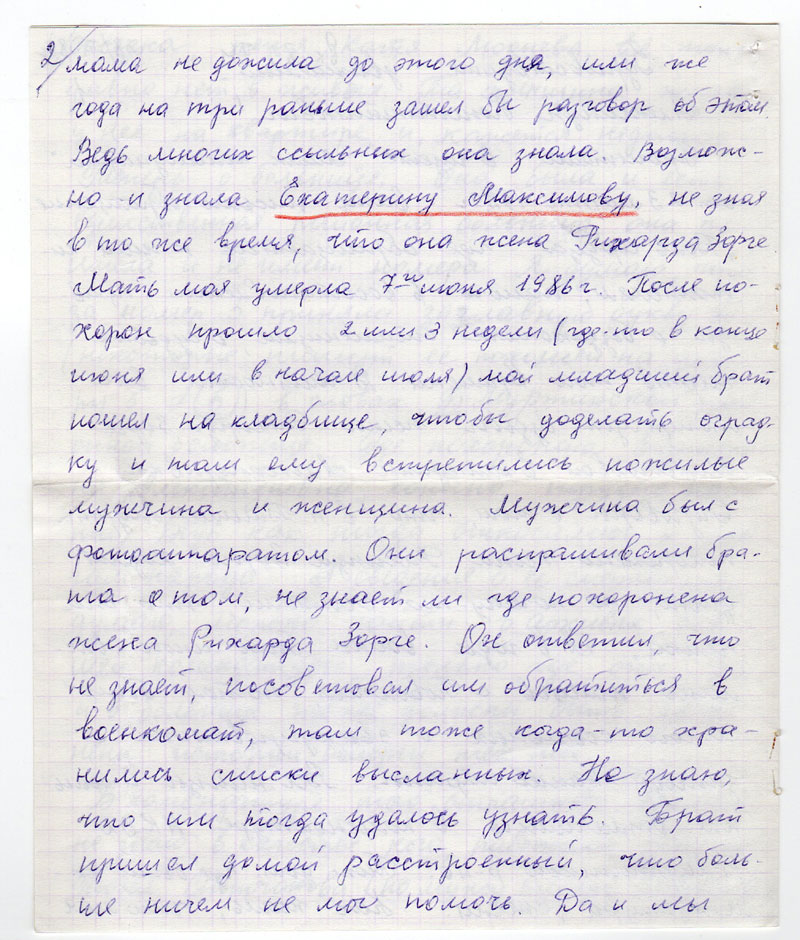 2/ мама не дожила до этого дня, или же
года на три раньше зашел бы разговор об этом.
Ведь многих ссыльных она знала. Возмож-
но и знала Екатерину Максимову, не зная
в то же время, что она жена Рихарда Зорге.
Мать моя умерла 7го июня 1986 г. После по-
хорон прошло 2 или 3 недели (где-то в конце
июня или в начале июля) мой младший брат
пошел на кладбище, чтобы доделать оград-
ку и там ему встретились пожилые
мужчина и женщина. Мужчина был с
фотоаппаратом. Они распрашивали бра-
та о том, не знает ли где похоронена
жена Рихарда Зорге. Он ответил, что
не знает, посоветовал им обратиться в
военкомат, там тоже когда-то хра-
нились списки высланных. Не знаю,
что им тогда удалось узнать. Брат
пришел домой расстроенный, что боль-
ше ничем не мог помочь. Да и мы